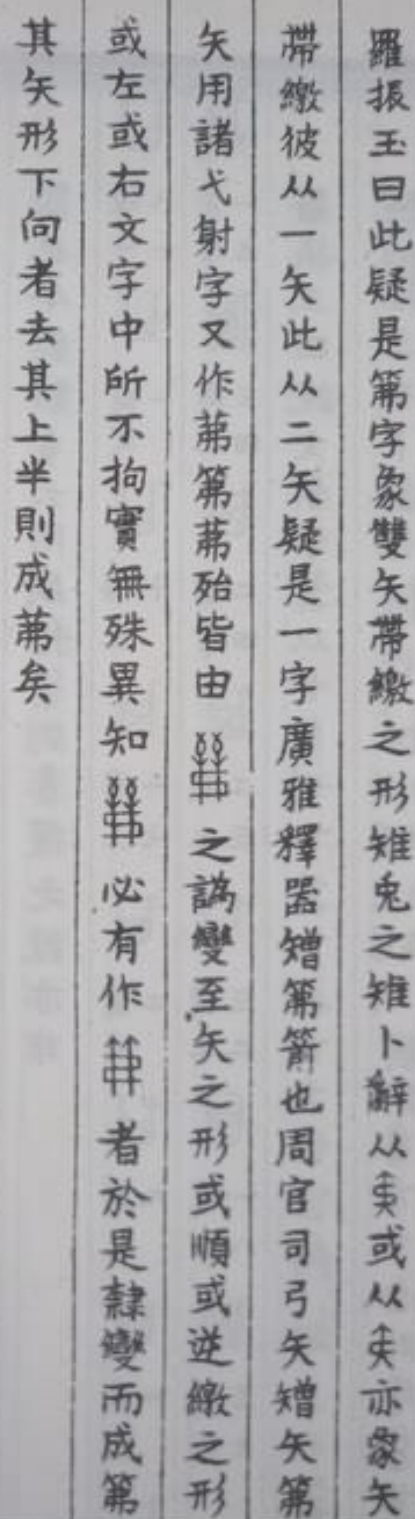 羅振玉曰此疑是第字象雙矢帶繳之形雉兔之雉卜辭从或从亦象矢
帶繳彼从一矢此从二矢疑是一字廣雅釋器矰第箭也周官司弓矢矰矢第
矢用諸弋射字又作茀第茀殆皆由之譌變至矢之形或順或逆繳之形
或左或右文字中所不拘實無殊異知必有作者於是隸變而成第
其矢形下向者去其上半則成茀矣